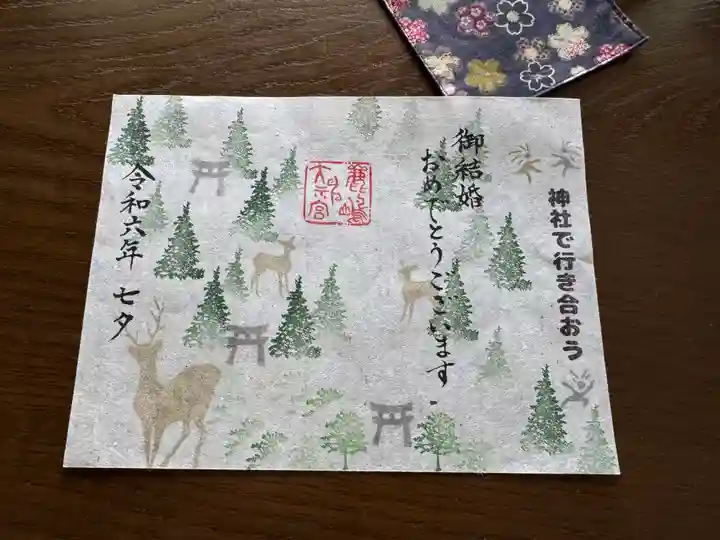 神社で行き合おう
御結婚
おめでとうございます
鹿嶋
天満宮
令和六年 七夕